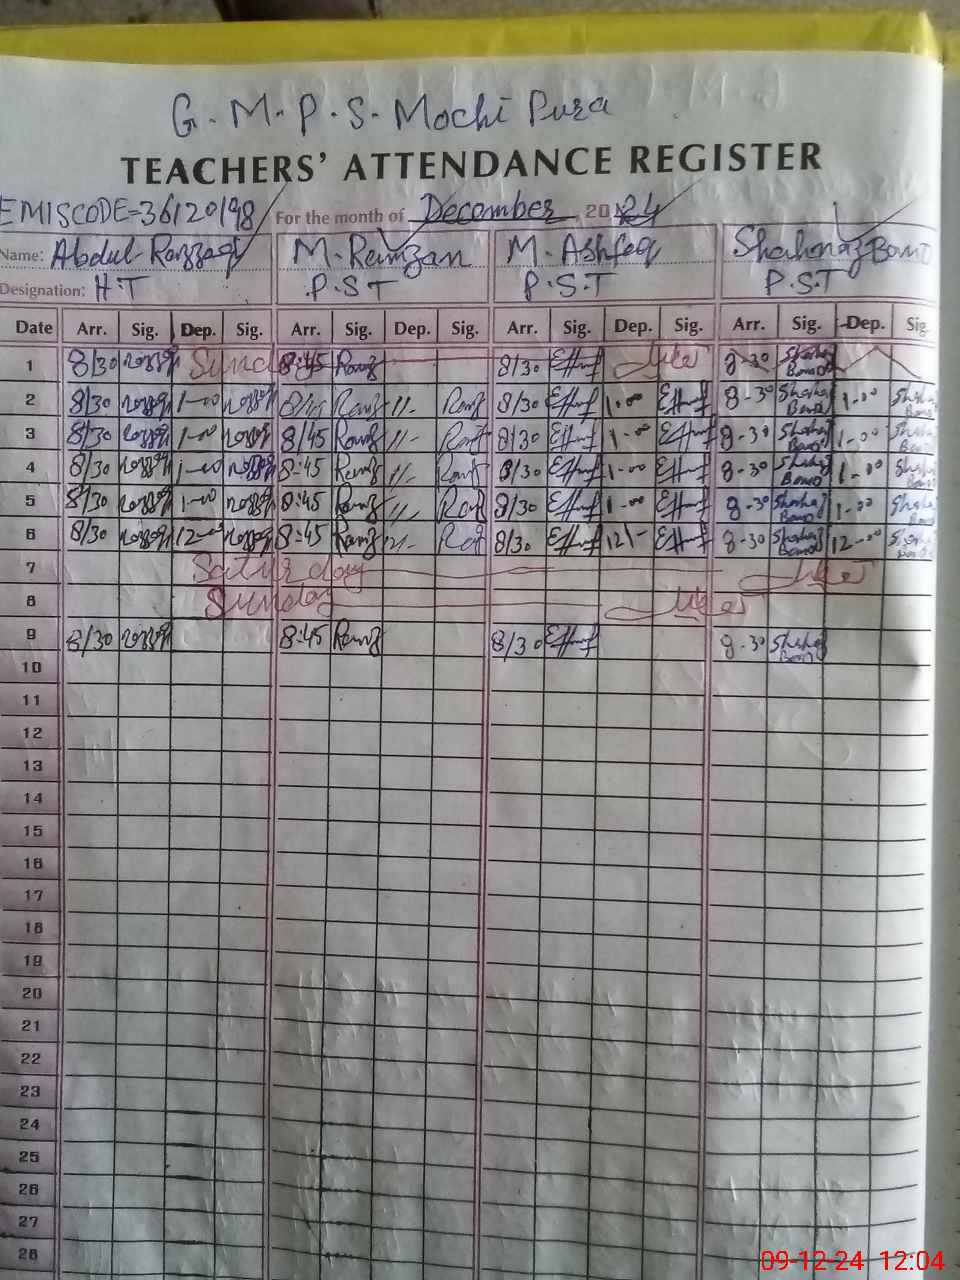 G. M. P. S. Mochi Pura
TEACHERS' ATTENDANCE REGISTER
EMISCODE=36120198 For the month of December 2024
Name: Abdul Razzaq M. Ramzan M. Ashfaq Shahnaz Bano
Designation: H.T P.S.T P.S.T P.S.T
Date Arr. Sig. Dep. Sig. Arr. Sig. Dep. Sig. Arr. Sig. Dep. Sig. Arr. Sig. Dep. Sig.
1 8/30 Sunday 8:45 Ramz 8/30 8-30 Shahnaz Bano
2 8/30 1-00 8/45 Ramz 1/- Ramz 8/30 1-00 8-30 Shahnaz Bano 1-00 Shahnaz Bano
3 8/30 1-00 8/45 Ramz 1/- Ramz 8/30 1-00 8-30 Shahnaz Bano 1-00 Shahnaz Bano
4 8/30 1-00 8:45 Ramz 1/- Ramz 8/30 1-00 8-30 Shahnaz Bano 1-00 Shahnaz Bano
5 8/30 1-00 8:45 Ramz 1/- Ramz 8/30 1-00 8-30 Shahnaz Bano 1-00 Shahnaz Bano
6 8/30 12-00 8:45 Ramz 12/- 8/30 12/- 8-30 Shahnaz Bano 12-00 Shahnaz Bano
7 Saturday
8 Sunday
9 8/30 8:45 Ramz 8/30 8-30 Shahnaz Bano
10
11
12
13
14
15
16
17
18
19
20
21
22
23
24
25
26
27
28
09-12-24 12:04